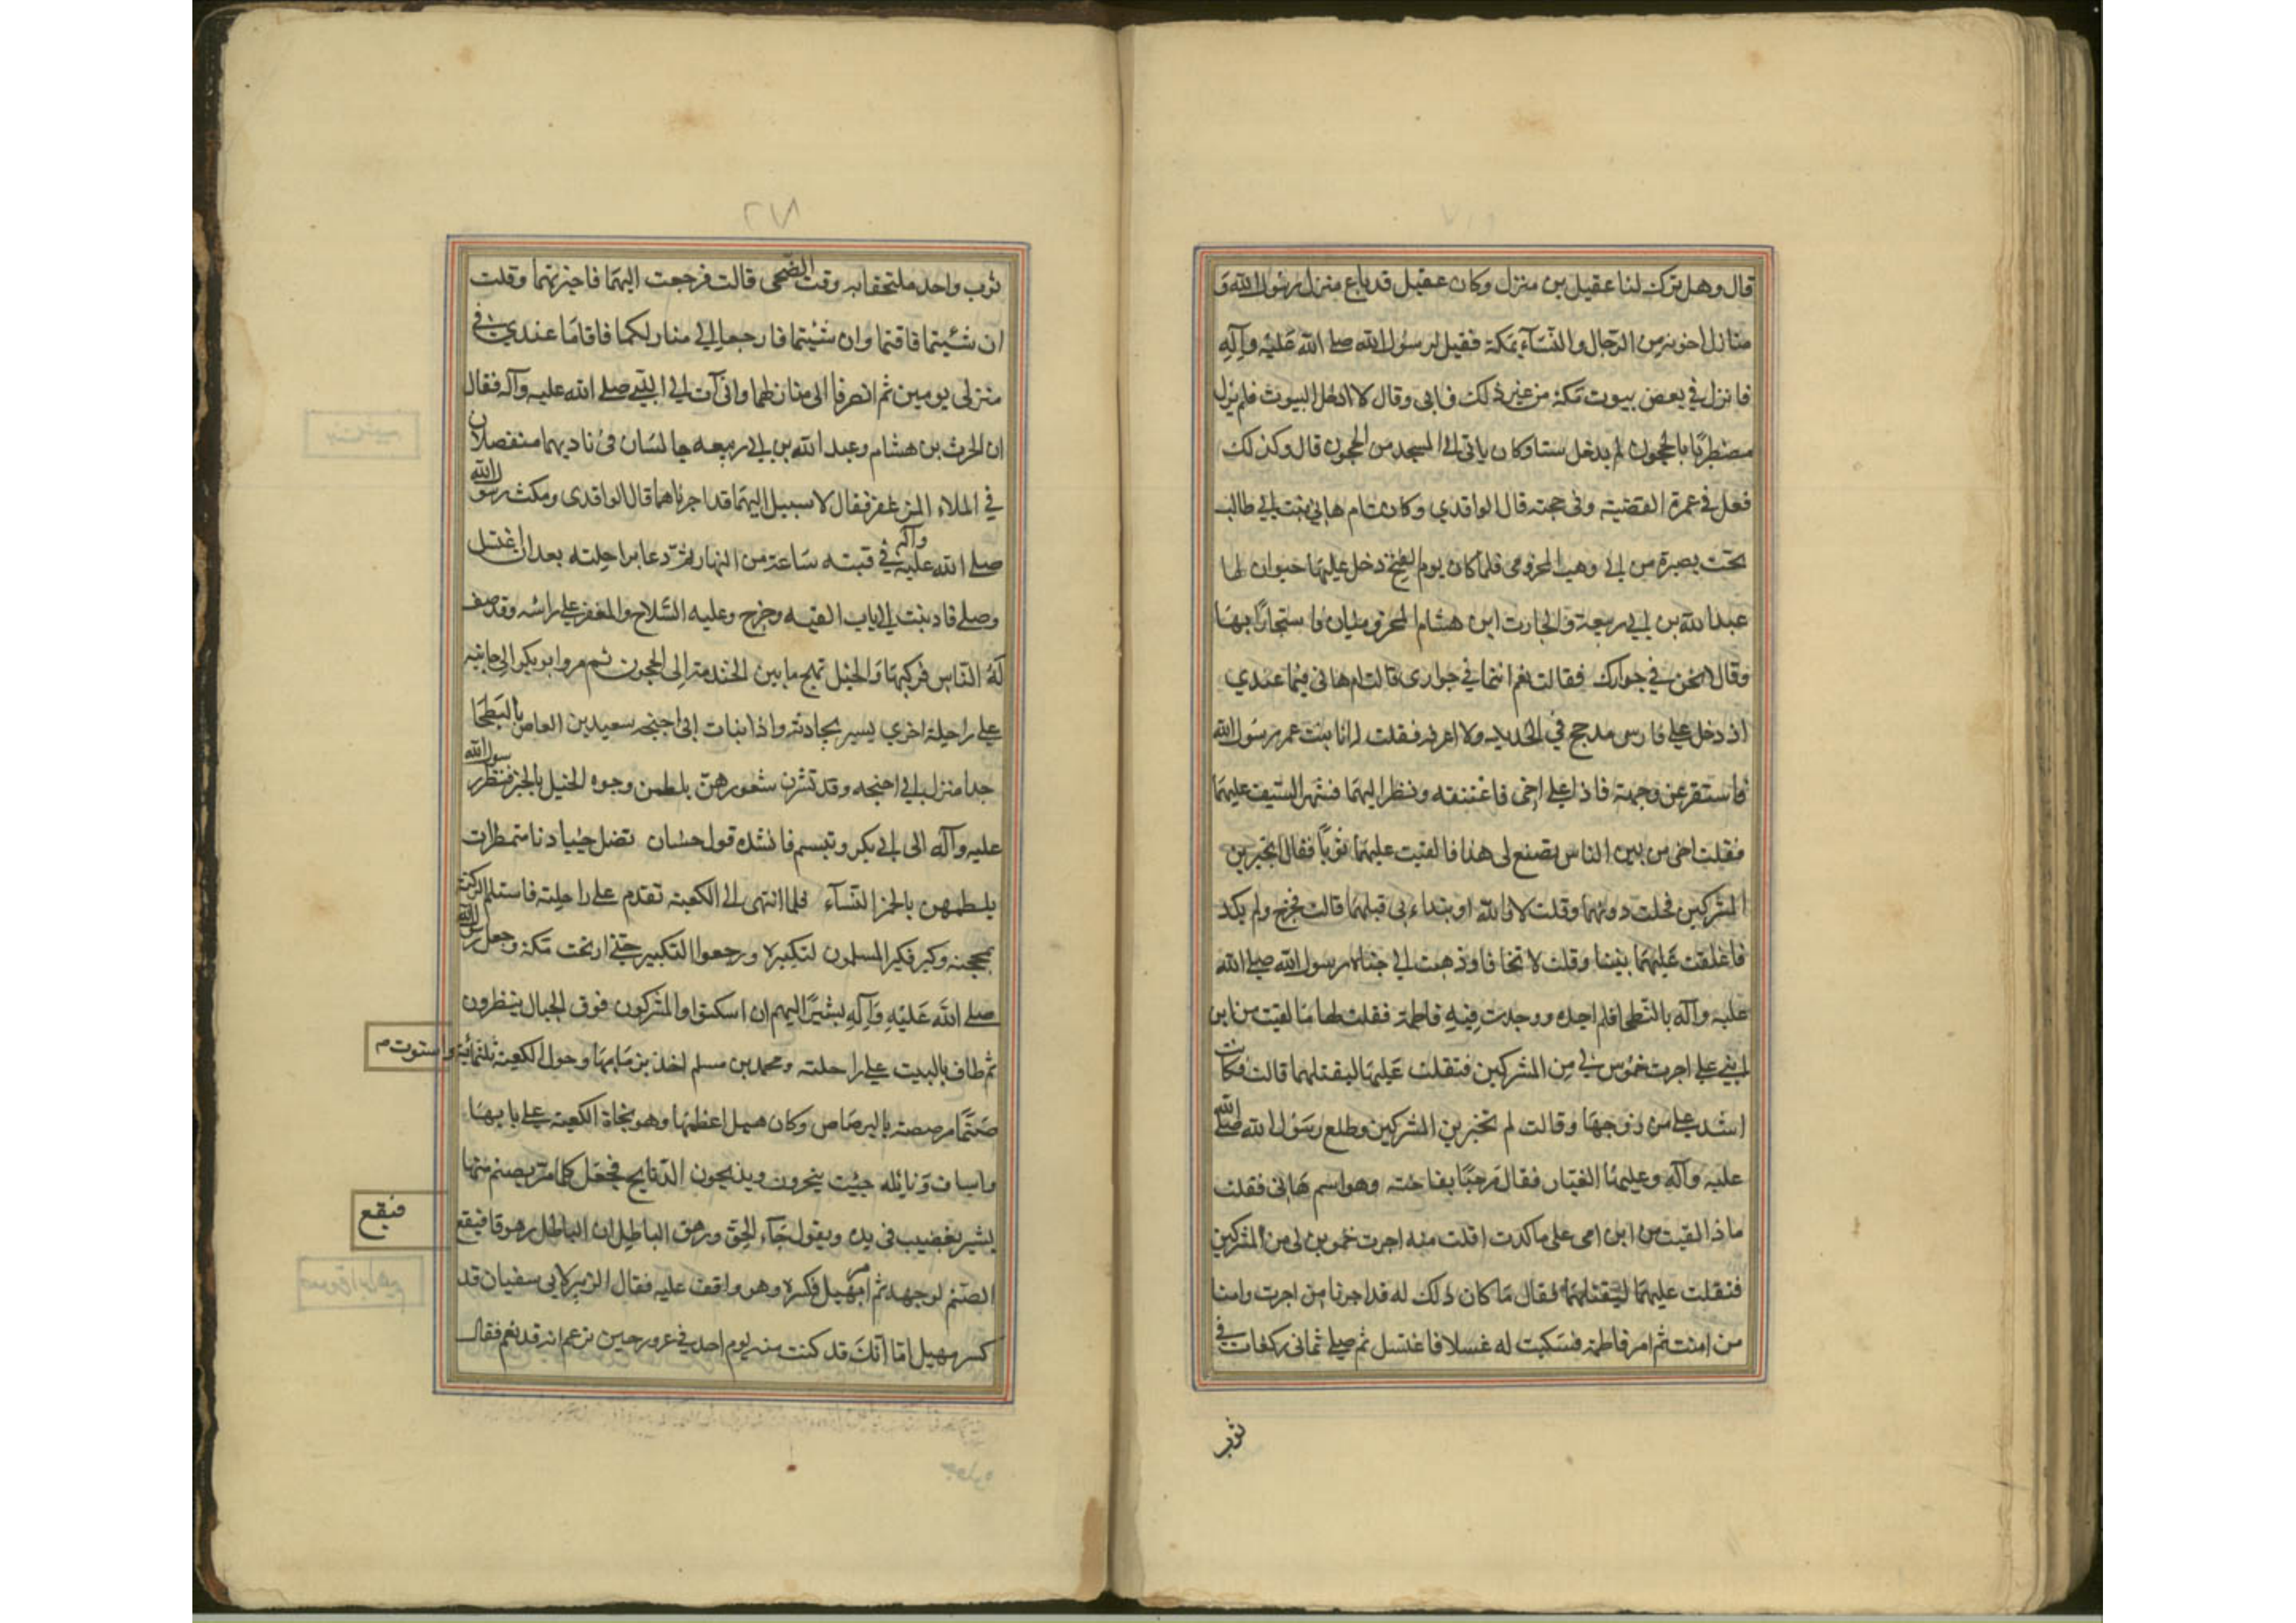 قال وهل ترك لنا عقيل من منزل وكان عقيل قد باع منزل رسول الله و
منازل اخوته من الرجال والنساء بمكة فقيل لرسول الله صلى الله عليه وآله
فانزل في بعض بيوت مكة من غير ذلك فابى وقال لا ادخل البيوت فلم يزل
مضطربا بالحجون لم يدخل ستا وكان ياتي الى المسجد من الحجون قال وكذلك
فعل في عمرة القضية وفي حجته قال الواقدي وكانت ام هاني بنت ابي طالب
تحت بصبرة من ابي وهب المخزومي فلما كان يوم الفتح دخل عليها حموان لها
عبد الله بن ابي ربيعة والحارث ابن هشام المخزوميان فاستجارا بها
وقالا نحن في جوارك فقالت نعم انتما في جواري قالت ام هاني فهما عندي
اذ دخل علي فارس مدجج في الحديد ولا اعرفه فقلت له انا بنت عم رسول الله
فاستقر عن وجهه فاذا علي اخي فاعتنقته ونظر اليهما فشهر السيف عليهما
فقلت اخي من بين الناس يصنع لي هذا فالقيت عليهما ثوبا فقال اتجيرين
المشركين فحلت دونهما وقلت لا والله او ابتداء بي قبلهما قالت فخرج ولم يكد
فاغلقت عليهما بيتا وقلت لا تخافا وذهبت الى خباء رسول الله صلى الله
عليه وآله بالبطحا فلم اجده ووجدت فيه فاطمة فقلت لها ما لقيت من ابن
امي علي اجرت حموين لي من المشركين فتفلت عليهما ليقتلهما قالت فكانت
اشد علي من زوجها وقالت لم تجيرين المشركين وطلع رسول الله صلى الله
عليه وآله وعليه الغبار فقال مرحبا بفاخته وهو اسم هاني فقلت
ماذا لقيت من ابن امي علي ما كدت افلت منه اجرت حموين لي من المشركين
فتفلت عليهما ليقتلهما فقال ما كان ذلك له قد اجرنا من اجرت وامنا
من امنت ثم امر فاطمة فسكبت له غسلا فاغتسل ثم صلى ثماني ركعات في
ثوب
ثوب واحد ملتحفا به وقت الضحى قالت فرجعت اليهما فاخبرتهما وقلت
ان شئتما فاقيما وان شئتما فارجعا الى منازلكما فاقاما عندي في
منزلي يومين ثم انصرفا الى منازلهما واتى آت الى النبي صلى الله عليه وآله فقال
ان الحرث بن هشام وعبد الله بن ابي ربيعه جالسان في ناديهما متفضلان
في الملاء المزعفر فقال لا سبيل اليهما قد اجرناهما قال الواقدي ومكث رسول الله
صلى الله عليه وآله في قبته ساعة من النهار ثم دعا براحلته بعد ان اغتسل
وصلى فادنيت الى باب القبه وخرج وعليه السلاح والمغفر على راسه وقد صف
له الناس فركبها والخيل تمعج ما بين الخندمة الى الحجون ثم مر وابو بكر الى جانبه
على راحلة اخرى يسير يحادثه واذا بنات ابي احيحه سعيد بن العاص بالبطحا
حذا منزل ابي احيحه وقد نشرن شعورهن يلطمن وجوه الخيل بالخمر فنظر رسول الله
عليه وآله الى ابي بكر وتبسم فانشده قول حسان تضل جيادنا متمطرات
يلطمهن بالخمر النساء فلما انتهى الى الكعبة تقدم على راحلته فاستلم الركن
بمحجنه وكبر فكبر المسلمون لتكبيره ورجعوا التكبير حتى ارتجت مكة وجعل رسول الله
صلى الله عليه وآله يشير اليهم ان اسكتوا والمشركون فوق الجبال ينظرون
ثم طاف بالبيت على راحلته ومحمد بن مسلم اخذ بزمامها وحول الكعبة ثلثمائة وستون م
صنما مرصصة بالرصاص وكان هبل اعظمها وهو تجاه الكعبة على بابها
واساف ونايله حيث ينحرون ويذبحون الذبايح فجعل كلما مر بصنم منها
يشير بقضيب في يده ويقول جاء الحق وزهق الباطل ان الباطل كان زهوقا فيقع
فيقع
الصنم لوجهه ثم امر بهبل فكسر وهو واقف عليه فقال الزبير لابي سفيان قد
كسر هبل اما انك قد كنت منه يوم احد في غرور حين تزعم انه قد نعم فقال